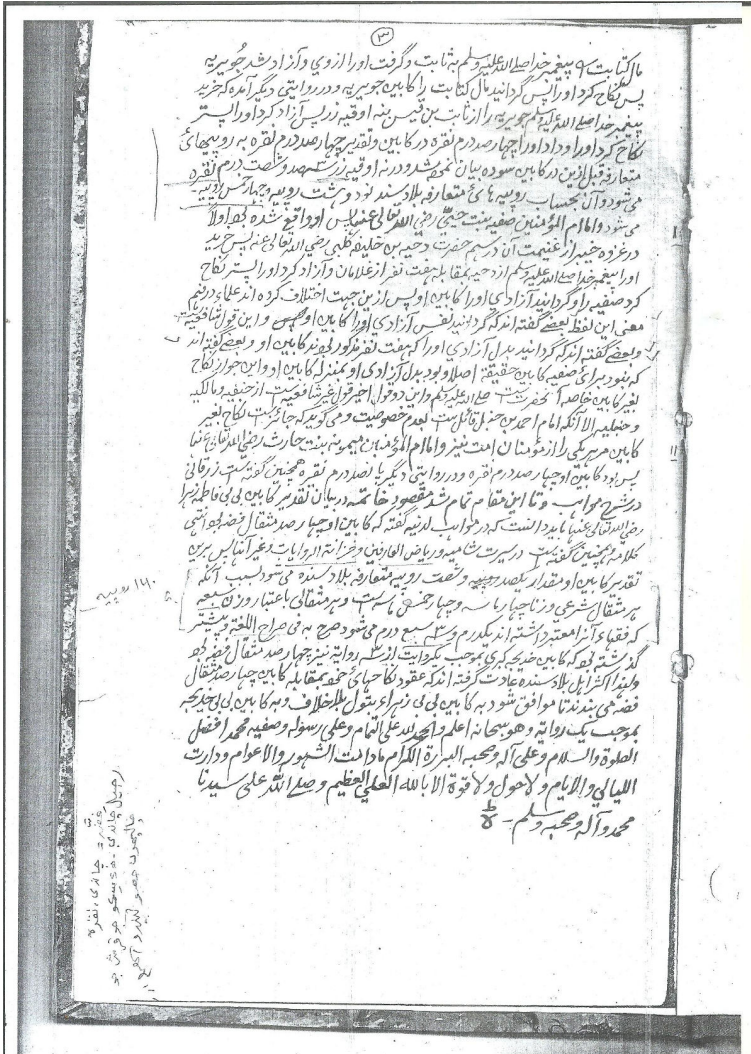 ۳
مال کتابت او پیغمبر خدا صلے اللہ علیہ وسلم بہ ثابت و گرفت او را از وی و آزاد شد جویریہ
پس نکاح کرد او را پس گردانید مال کتابت را کابین جویریہ و در روایتی دیگر آمدہ کہ خرید
پیغمبر خدا صلے اللہ علیہ وسلم جویریہ را از ثابت بن قیس بنہ اوقیہ زر پس آزاد کرد او را پستر
نکاح کرد او را و داد او را چہار صد درم نقرہ در کابین و تقدیر چہار صد درم نقرہ بہ روپیهائ
متعارفہ قبل ازین در کابین سودہ بیان نمودہ شد و نہ اوقیہ زر سہ صد و شصت درم نقرہ
می شود و آن بحساب روپیہ هائ متعارفہ بلاد سند نود و شت روپیہ و چهار خمس روپیہ
می شود و اما ام المؤمنین صفیہ بنت حیی رضی اللہ تعالی عنہا پس او واقع شدہ بود اولاً
در غزوہ خیبر از غنیمت آن در سهم حضرت دحیہ بن خلیفہ کلبی رضی اللہ تعالی عنہ پس خرید
او را پیغمبر خدا صلے اللہ علیہ وسلم از دحیہ بمقابلہ هفت نفر از غلامان و آزاد کرد او را پستر نکاح
کرد صفیہ را و گردانید آزادی او را کابین او پس ازین جهت اختلاف کردہ اند علماء در فهم
معنی این لفظ بعضے گفتہ اند کہ گردانید نفس آزادی او را کابین او و این قول شافعیہ است
و بعضے گفتہ اند کہ گردانید بدل آزادی او را کہ هفت نفر مذکور بودند کابین او و بعضے گفتہ اند
کہ نبود برای صفیہ کابین حقیقة اصلا و بود بدل آزادی او بمنزلہ کابین او و این جواز نکاح
بغیر کابین خاصہ آنحضرت است صلے اللہ علیہ وسلم و این دو قول اخیر قول غیر شافعیہ است از حنفیہ و مالکیہ
و حنبلیہ الا آنکہ امام احمد بن حنبل قائل است بعدم خصوصیت و می گوید کہ جائز است نکاح بغیر
کابین مر ہر یکی را از مؤمنان امت نیز و اما ام المؤمنین میمونہ بنت حارث رضی اللہ تعالی عنہا
پس بود کابین او چهار صد درم نقرہ و در روایتی دیگر پانصد درم نقرہ همچنین گفتہ است زرقانی
در شرح مواهب و تا این مقام تمام شد مقصود خاتمہ در بیان تقدیر کابین بی بی فاطمہ زہرا
رضی اللہ تعالی عنہا باید دانست کہ در مواهب لدنیہ گفتہ کہ کابین او چهار صد مثقال فضہ بود انتهی
کلامہ و همچنین گفتہ است در سیرت شامیہ و ریاض العارفین و خزانة الروایات و غیر آنها پس برین
تقدیر کابین او مقدار یکصد و شصت روپیہ متعارفہ بلاد سندہ می شود بسبب آنکہ
ہر مثقال شرعی وزنا چهار ماسہ و چهار خمس ماسہ است و ہر مثقالی باعتبار وزن سبعہ
کہ فقهاء آنرا معتبر داشتہ اند یکدرم و سہ سبع درم می شود صرح بہ فی صراح اللغة و پیشتر
گذشتہ بود کہ کابین خدیجہ کبری بموجب یک روایت از سہ روایة نیز چهار صد مثقال فضہ بود
ولہذا اکثر اهل بلاد سندہ عادت گرفتہ اند کہ عقود نکاحهائ خود بمقابلہ کابین چهار صد مثقال
فضہ می بندند تا موافق شود بہ کابین بی بی زهراء بتول بلا خلاف و بہ کابین بی بی خدیجہ
بموجب یک روایة و هو سبحانہ اعلم و الحمد للہ علی التمام و علی رسولہ و صفیہ محمد افضل
الصلوة و السلام و علی آلہ و صحبہ البررة الکرام ما دامت الشهور و الاعوام و دارت
اللیالی و الایام و لا حول ولا قوة الا باللہ العلی العظیم و صلے اللہ علی سیدنا
محمد و آلہ و صحبہ وسلم -
۱۶۰ روپیہ